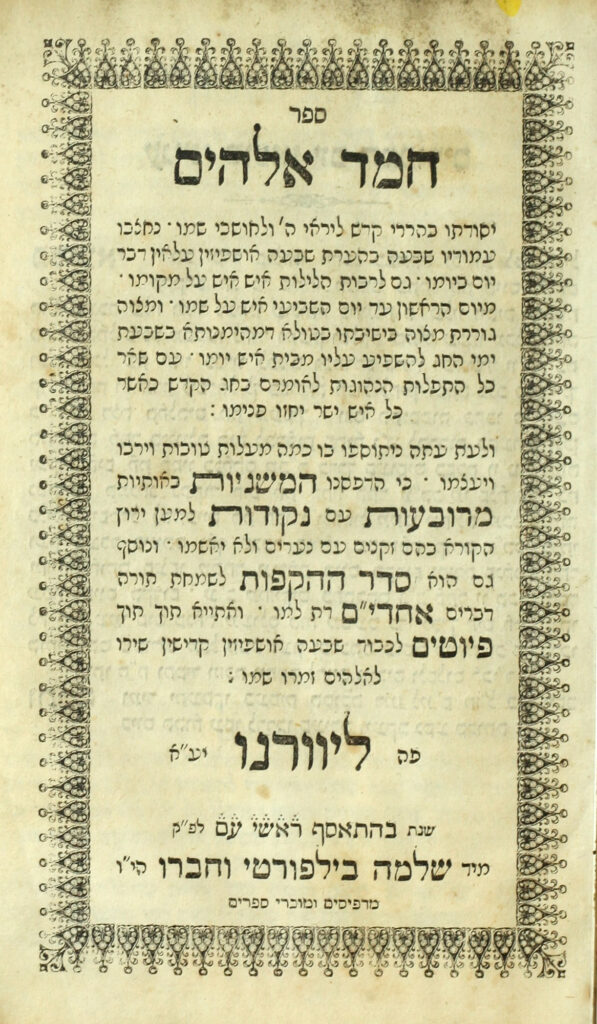 ספר
חמד אלהים
יסודתו בהררי קדש ליראי ה' ולחושבי שמו · נחצבו
עמודיו שבעה בהערת שבעה אושפיזין עלאין דבר
יום ביומו · גם לרבות הלילות איש איש על מקומו ·
מיום הראשון עד יום השביעי איש על שמו · ומצוה
גוררת מצוה בישיבתו בטולא דמהימנותא בשבעת
ימי החג להשפיע עליו מבית איש יומו · עם שאר
כל התפלות הנהוגות לאומרם בחג הקדש כאשר
כל איש ישר יחזו פנימו :
ולעת עתה ניתוספו בו כמה מעלות טובות וירבו
ויעצמו · כי הדפסנו המשניות באותיות
מרובעות עם נקודות למען ירוץ
הקורא בהם זקנים עם נערים ולא יאשמו · ונוסף
גם הוא סדר ההקפות לשמחת תורה
דברים אחדי״ם דת למו · ואתייא תוך תוך
פיוטים לכבוד שבעה אושפיזין קדישין שירו
לאלהים זמרו שמו :
פה ליוורנו יע״א
שנת בהתאסף ראשי עם לפ״ק
מיד שלמה בילפורטי וחברו הי״ו
מדפיסים ומוכרי ספרים